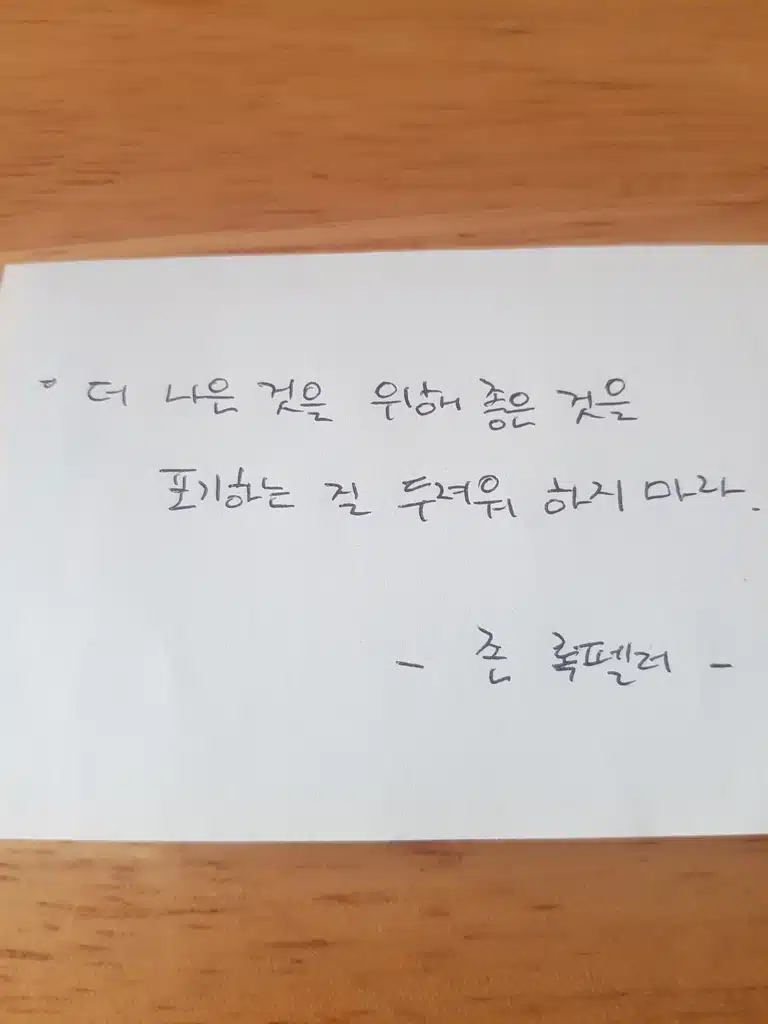 ° 더 나은 것을 위해 좋은 것을
포기하는 질 두려워 하지 마라.
- 존 록펠러 -